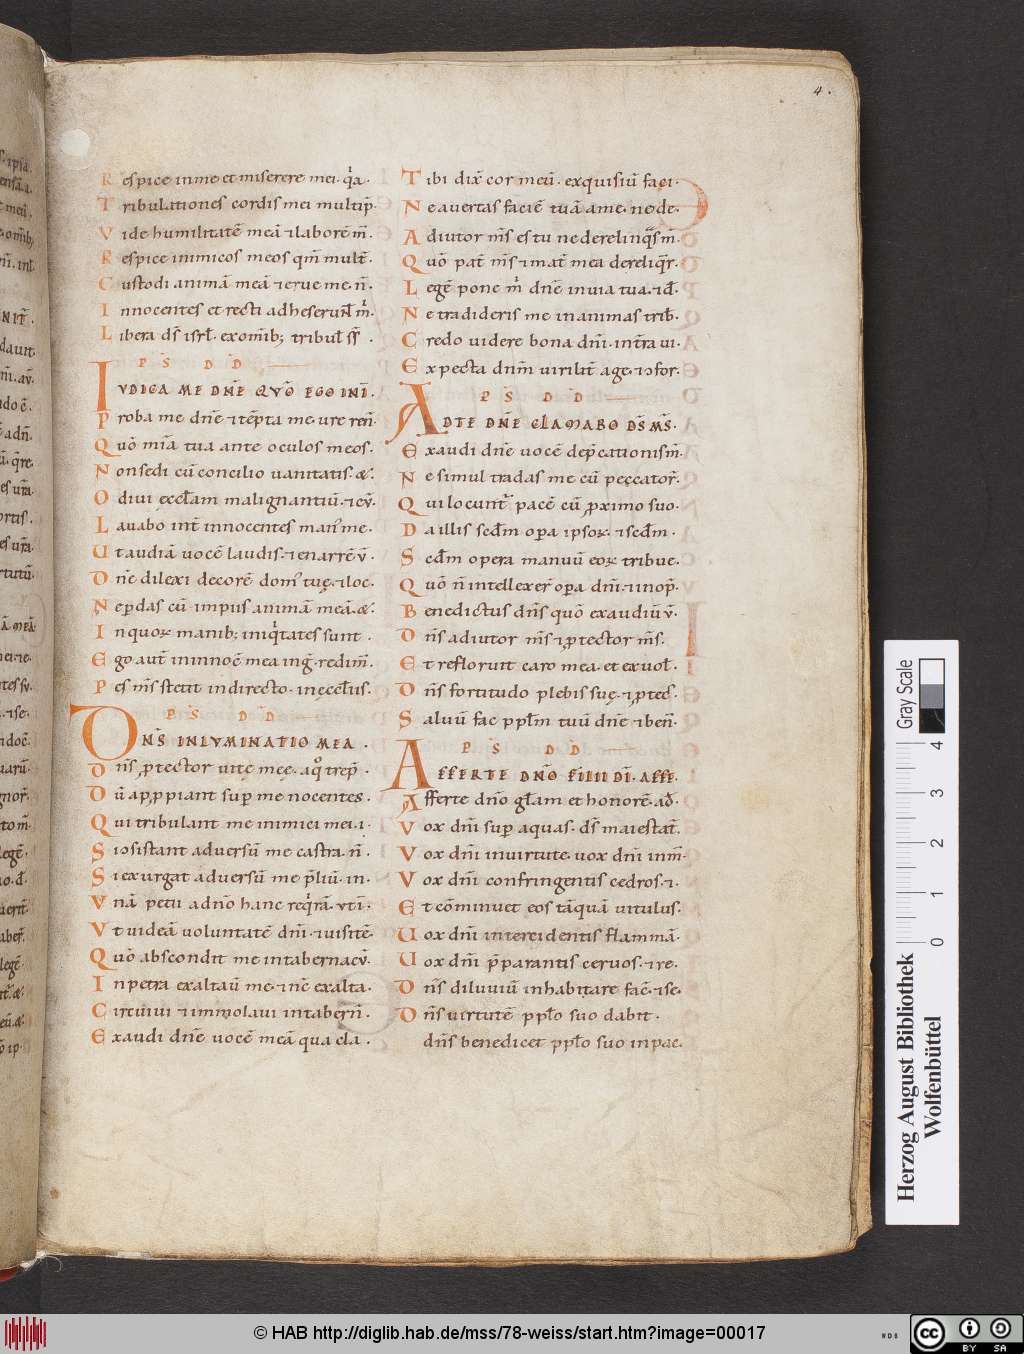 4.
Respice inme et miserere mei· qa·
Tribulationes cordis mei multip̄
Vide humilitatē meā ⁊laborē m̄·
Respice inimicos meos qm̄ mult̄·
Custodi animā meā ⁊erue me· n̄·
Innocentes et recti adheserun̄ m·
Libera ds̄ isrl̄· exomīb; tribul̄ ss̄·
PS̄ DD
IVDICA ME DN̄E QVŌ EGO INĪ·
Proba me dn̄e ⁊tēpta me· ure ren̄·
Quō mīa tua ante oculos meos·
Non sedi cū concilio uanitatis· &·
Odiui eccl̄am malignantiū· ⁊cv̄·
Lauabo int̄ innocentes man' me·
Ut audiā uocē laudis· ⁊enarrē v̄·
Dn̄e dilexi decorē dom' tuę· ⁊loc·
Neꝑdas cū impiis animā meā· &·
Inquoꝝ manib; iniqtates sunt·
Ego aut̄ ininnoc̄ mea ing̃· redim̄·
Pes ms̄ stetit indirecto· inęccl̄us·
PS̄ DD
DNS̄ INLVMINATIO MEA·
Dns̄ ꝓtector uitę meę· aqo trep̄·
Dū apꝓpiant suꝑ me nocentes·
Qui tribulant me inimici mei· i·
Si ↄsistant aduersū me castra· n̄·
Si exurgat aduersū me p̄liū· in·
Vnā petii adn̄o hanc reqrā· vt ī·
Vt uideā uoluntatē dn̄i· ⁊uisitē·
Quō abscondit me intabernacv̄·
Inpetra exaltaū me· ⁊nc̄ exalta·
Circuiui ⁊immolaui intabern̄·
Exaudi dn̄e uocē meā qua cla·
Tibi dix̄ cor meū· exquisiū faci·
Ne auertas faciē tuā ame· ne de·
Adiutor ms̄ es tu ne derelinqs̄ m̄·
Quō pat̄ ms̄ ⁊mat̄ mea dereliqr̄·
Legē pone m dn̄e inuia tua· ⁊d̄·
Ne tradideris me inanimas trib̄·
Credo uidere bona dn̄i· intr̄a ui·
Expecta dn̄m uirilit̄ age· ⁊ↄfor·
PS̄ DD
ADTE DN̄E CLAMABO DS̄ MS̄·
Exaudi dn̄e uocē dep̄cationis m̄·
Ne simul tradas me cū peccator̄·
Qui locunt̄ pacē cū ꝓximo suo·
Da illis secd̄m oꝑa ipsoꝝ· ⁊secd̄m·
Secd̄m opera manuū eoꝝ tribue·
Quō n̄ intellexer̄ oꝑa dn̄i· ⁊inoꝑ·
Benedictus dn̄s quō exaudiū v̄·
Dn̄s adiutor ms̄ ⁊ꝓtector ms̄·
Et refloruit caro mea· et exuol̄·
Dn̄s fortitudo plebis suę· ⁊ꝓtec̄·
Saluū fac ppl̄m tuū dn̄e ⁊ben̄·
PS̄ DD
AFFERTE DN̄O FILII DĪ· AFFE·
Afferte dn̄o gl̄am et honorē· ad̄·
Vox dn̄i suꝑ aquas· ds̄ maiestat̄·
Vox dn̄i inuirtute· uox dn̄i inm̄·
Vox dn̄i confringentis cedros· ⁊·
Et cōminuet eos tāquā uitulus·
Uox dn̄i intercidentis flammā·
Uox dn̄i p̄parantis ceruos· ⁊re·
Dn̄s diluuiū inhabitare fac̄· ⁊se·
Dn̄s uirtutē pplo suo dabit·
dn̄s benedicet pplo suo inpac·
Gray Scale
0 1 2 3 4
Herzog August Bibliothek
Wolfenbüttel
© HAB http://diglib.hab.de/mss/78-weiss/start.htm?image=00017
cc BY SA